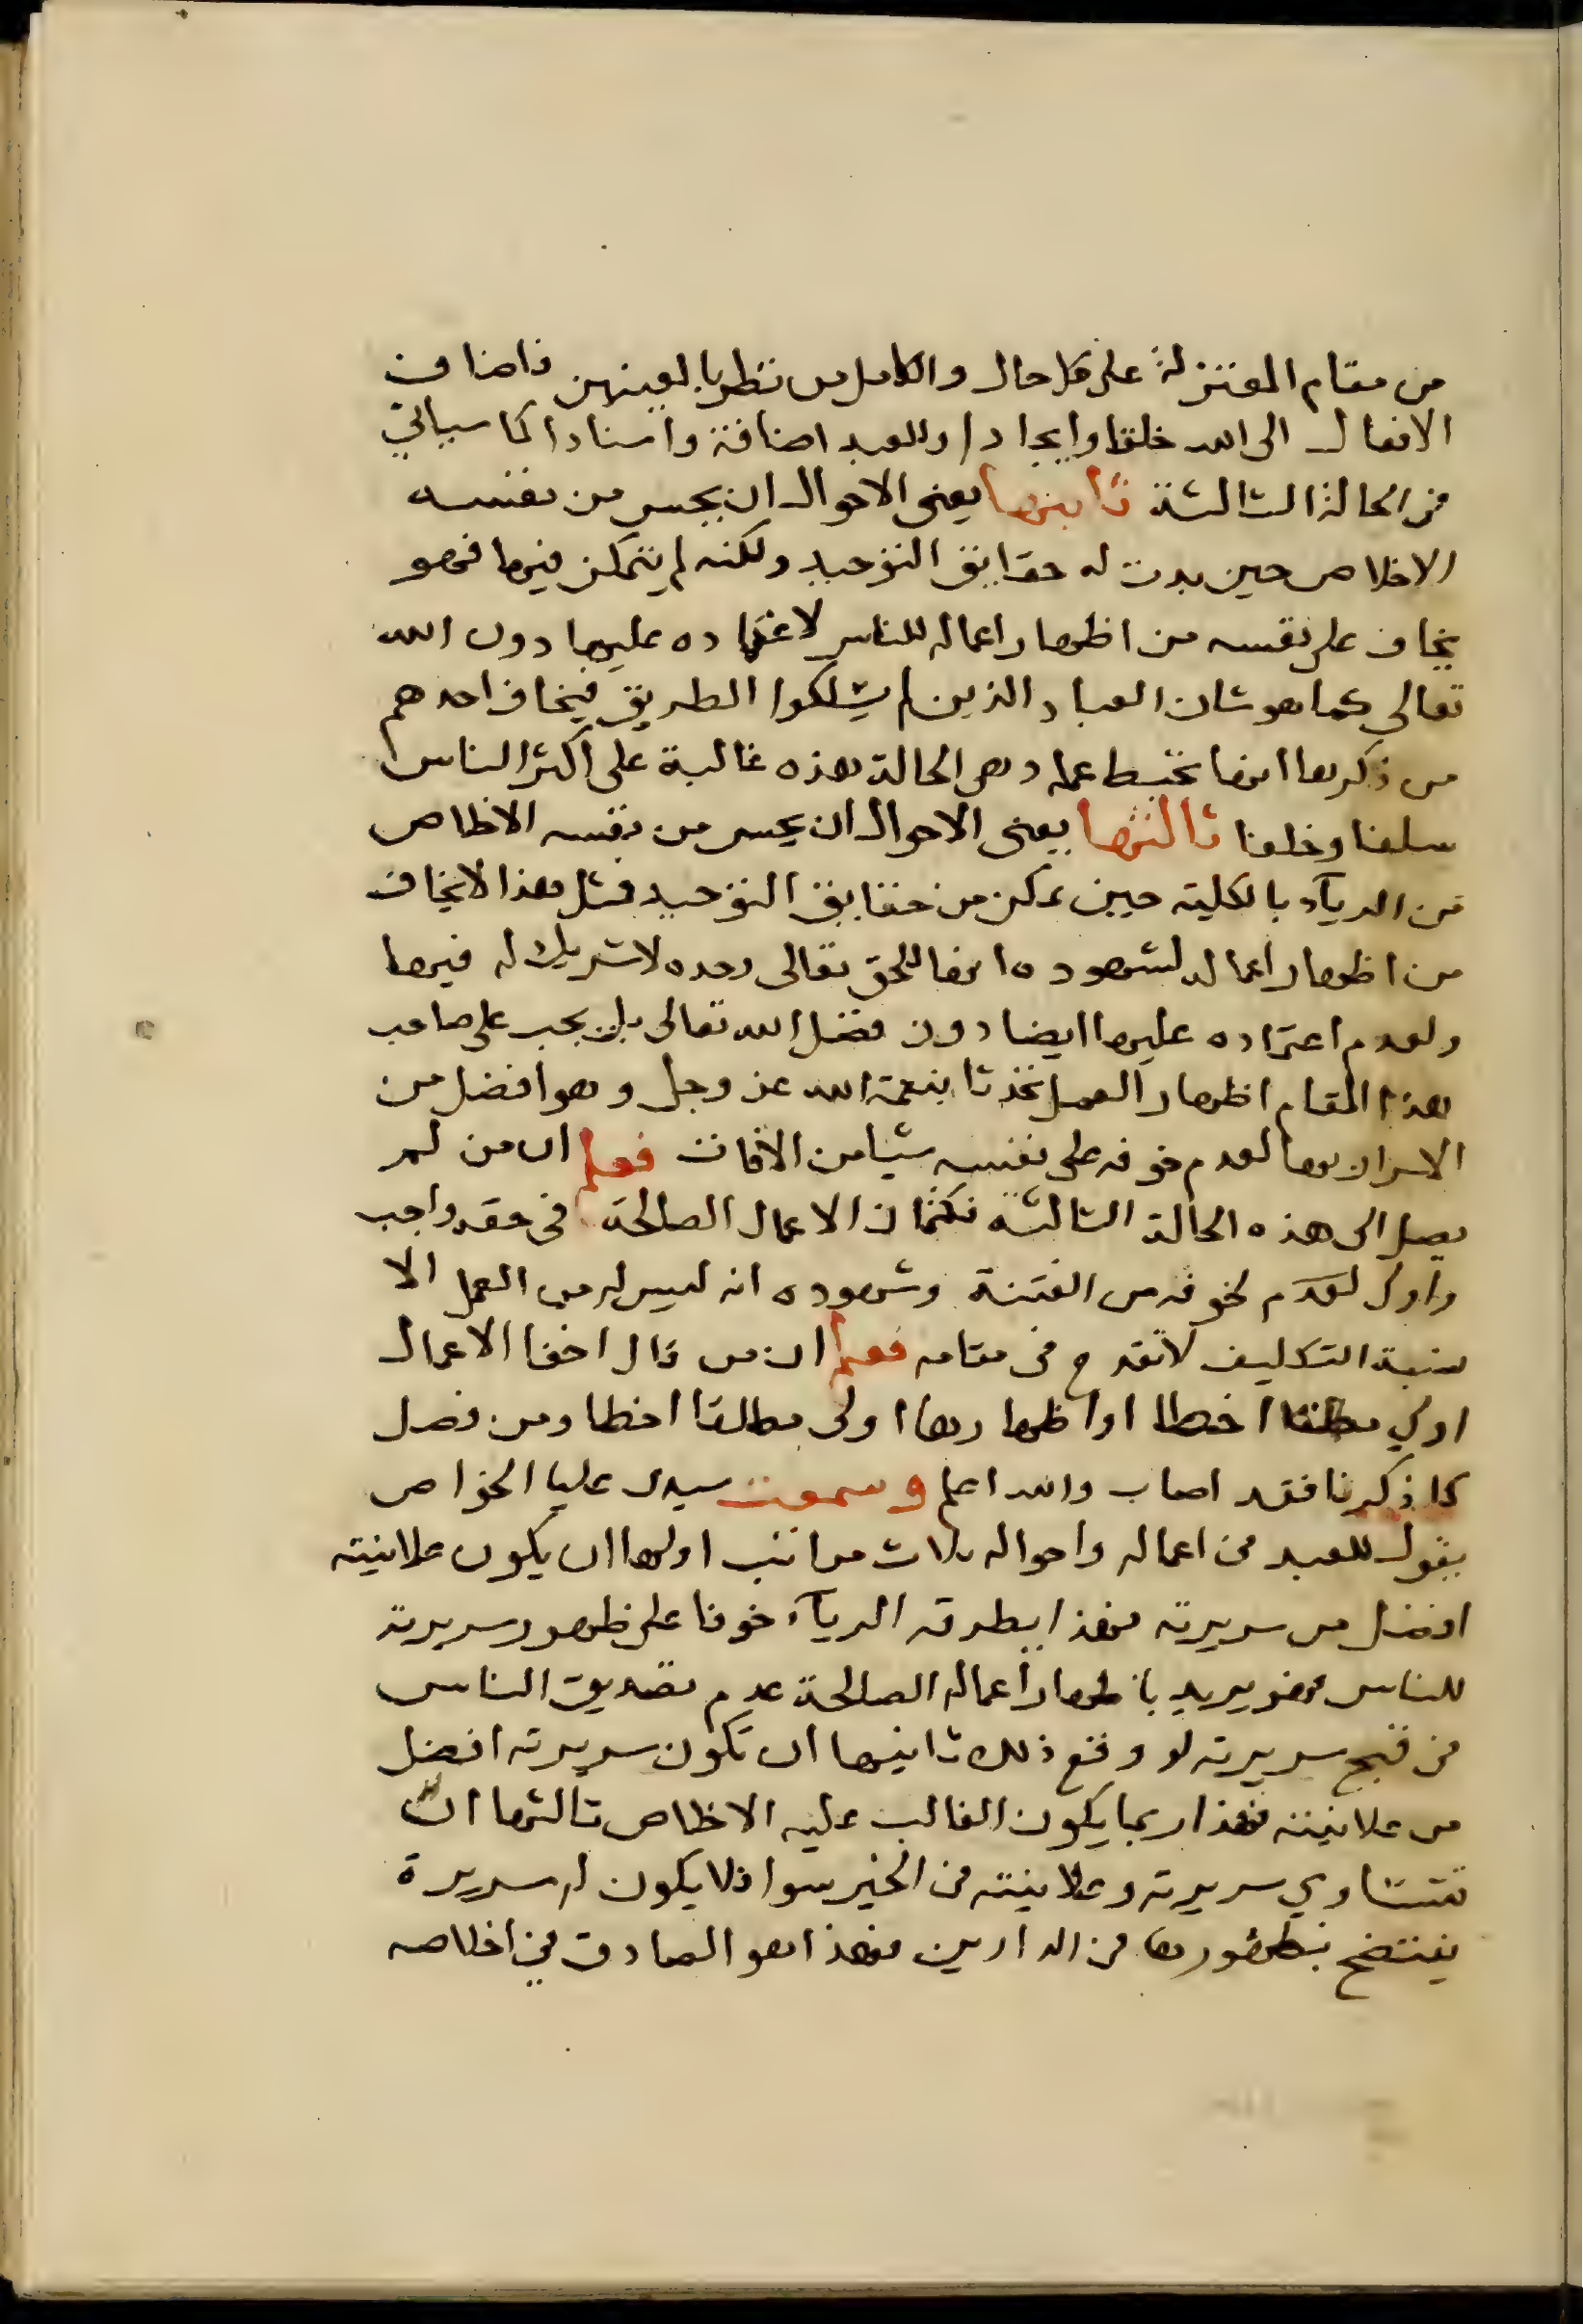 من مقام المعتزلة على كل حال والكامل من نظر بالعينين فاضاف
الافعال الى الله خلقا وايجادا وللعبد اضافة واسنادا كما سياتي
في الحالة الثالثة ثانيها يعنى الاحوال ان يحس من نفسه
الاخلاص حين بدت له حقايق التوحيد ولكنه لم يتمكن فيها فهو
يخاف على نفسه من اظهار اعماله للناس لاعتماده عليها دون الله
تعالى كما هو شان العباد الذين لم يسلكوا الطريق فيخاف احدهم
من ذكرها انها تحبط عمله وهى الحالة هذه غالبة على اكثر الناس
سلفا وخلفا ثالثها يعنى الاحوال ان يحس من نفسه الاخلاص
من الرياء بالكلية حين تمكن من حقايق التوحيد فمثل هذا لا يخاف
من اظهار اعماله لشهوده انها للحق تعالى وحده لا شريك له فيها
ولعدم اعتماده عليها ايضا دون فضل الله تعالى بل يجب على صاحب
هذا المقام اظهار العمل تحدثا بنعمة الله عز وجل وهو افضل من
الاسرار بها لعدم خوفه على نفسه شيا من الافات فعلم ان من لم
يصل الى هذه الحالة الثالثة فكتمان الاعمال الصالحة فى حقه واجب
واولى لعدم لخوفه من الفتنة وشهوده انه ليس له من العمل الا
نسبة التكليف لا تقدح فى مقامه فعلم ان من قال اخفا الاعمال
اولى مطلقا اخطا او اظهارها اولى مطلقا اخطا ومن فصل
كما ذكرنا فقد اصاب والله اعلم وسمعت سيدى عليا الخواص
يقول للعبد فى اعماله واحواله ثلاث مراتب اولها ان يكون علانيته
افضل من سريرته فهذا يطرقه الرياء خوفا على ظهور سريرته
للناس فهو يريد باظهار اعماله الصالحة عدم تصديق الناس
فى قبح سريرته لو وقع ذلك ثانيها ان تكون سريرته افضل
من علانيته فهذا ربما يكون الغالب عليه الاخلاص ثالثها ان
تتساوي سريرته وعلانيته فى الخير سوا فلا يكون له سريرة
يفتضح بظهورها فى الدارين فهذا هو الصادق في اخلاصه